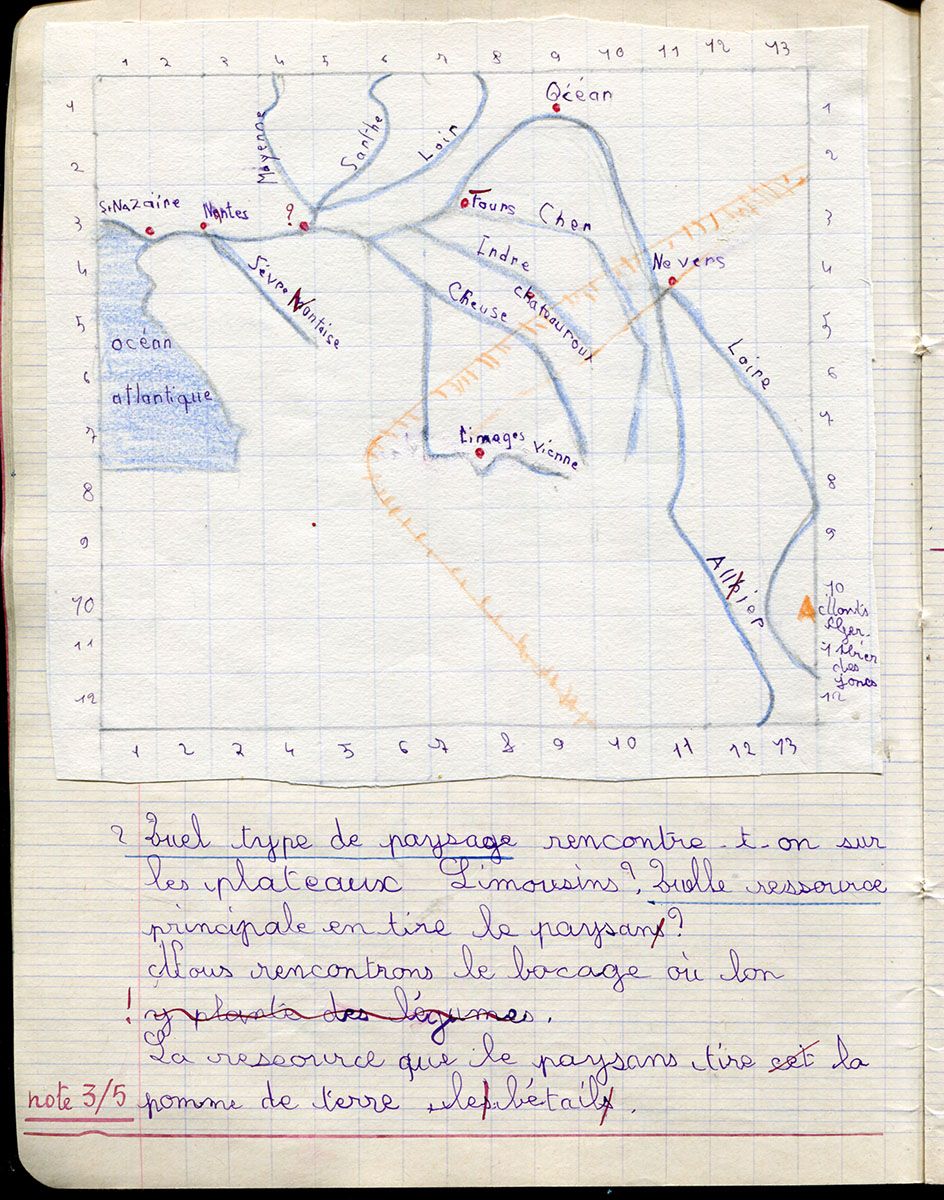 1 2 3 4 5 6 7 8 9 10 11 12 13
1 1
2 2
3 3
4 4
5 5
6 6
7 7
8 8
9 9
10 10
11 11
12 12
Océan
Mayenne
Santhe
Loin
St Nazaire
Nantes
?
Tours
Cher
Nevers
Indre
chateauroux
Creuse
Sèvre Nantaise
océan
atlantique
Loire
Limages
Vienne
Allier
Monts
des
Joncs
1 2 3 4 5 6 7 8 9 10 11 12 13
2 Quel type de paysage rencontre-t-on sur
les plateaux Limousins?, Quelle ressource
principale en tire le paysans?
Nous rencontrons le bocage où lon
! y plante des légumes.
La ressource que le paysans tire cet la
note 3/5 pomme de terre, les bétails.